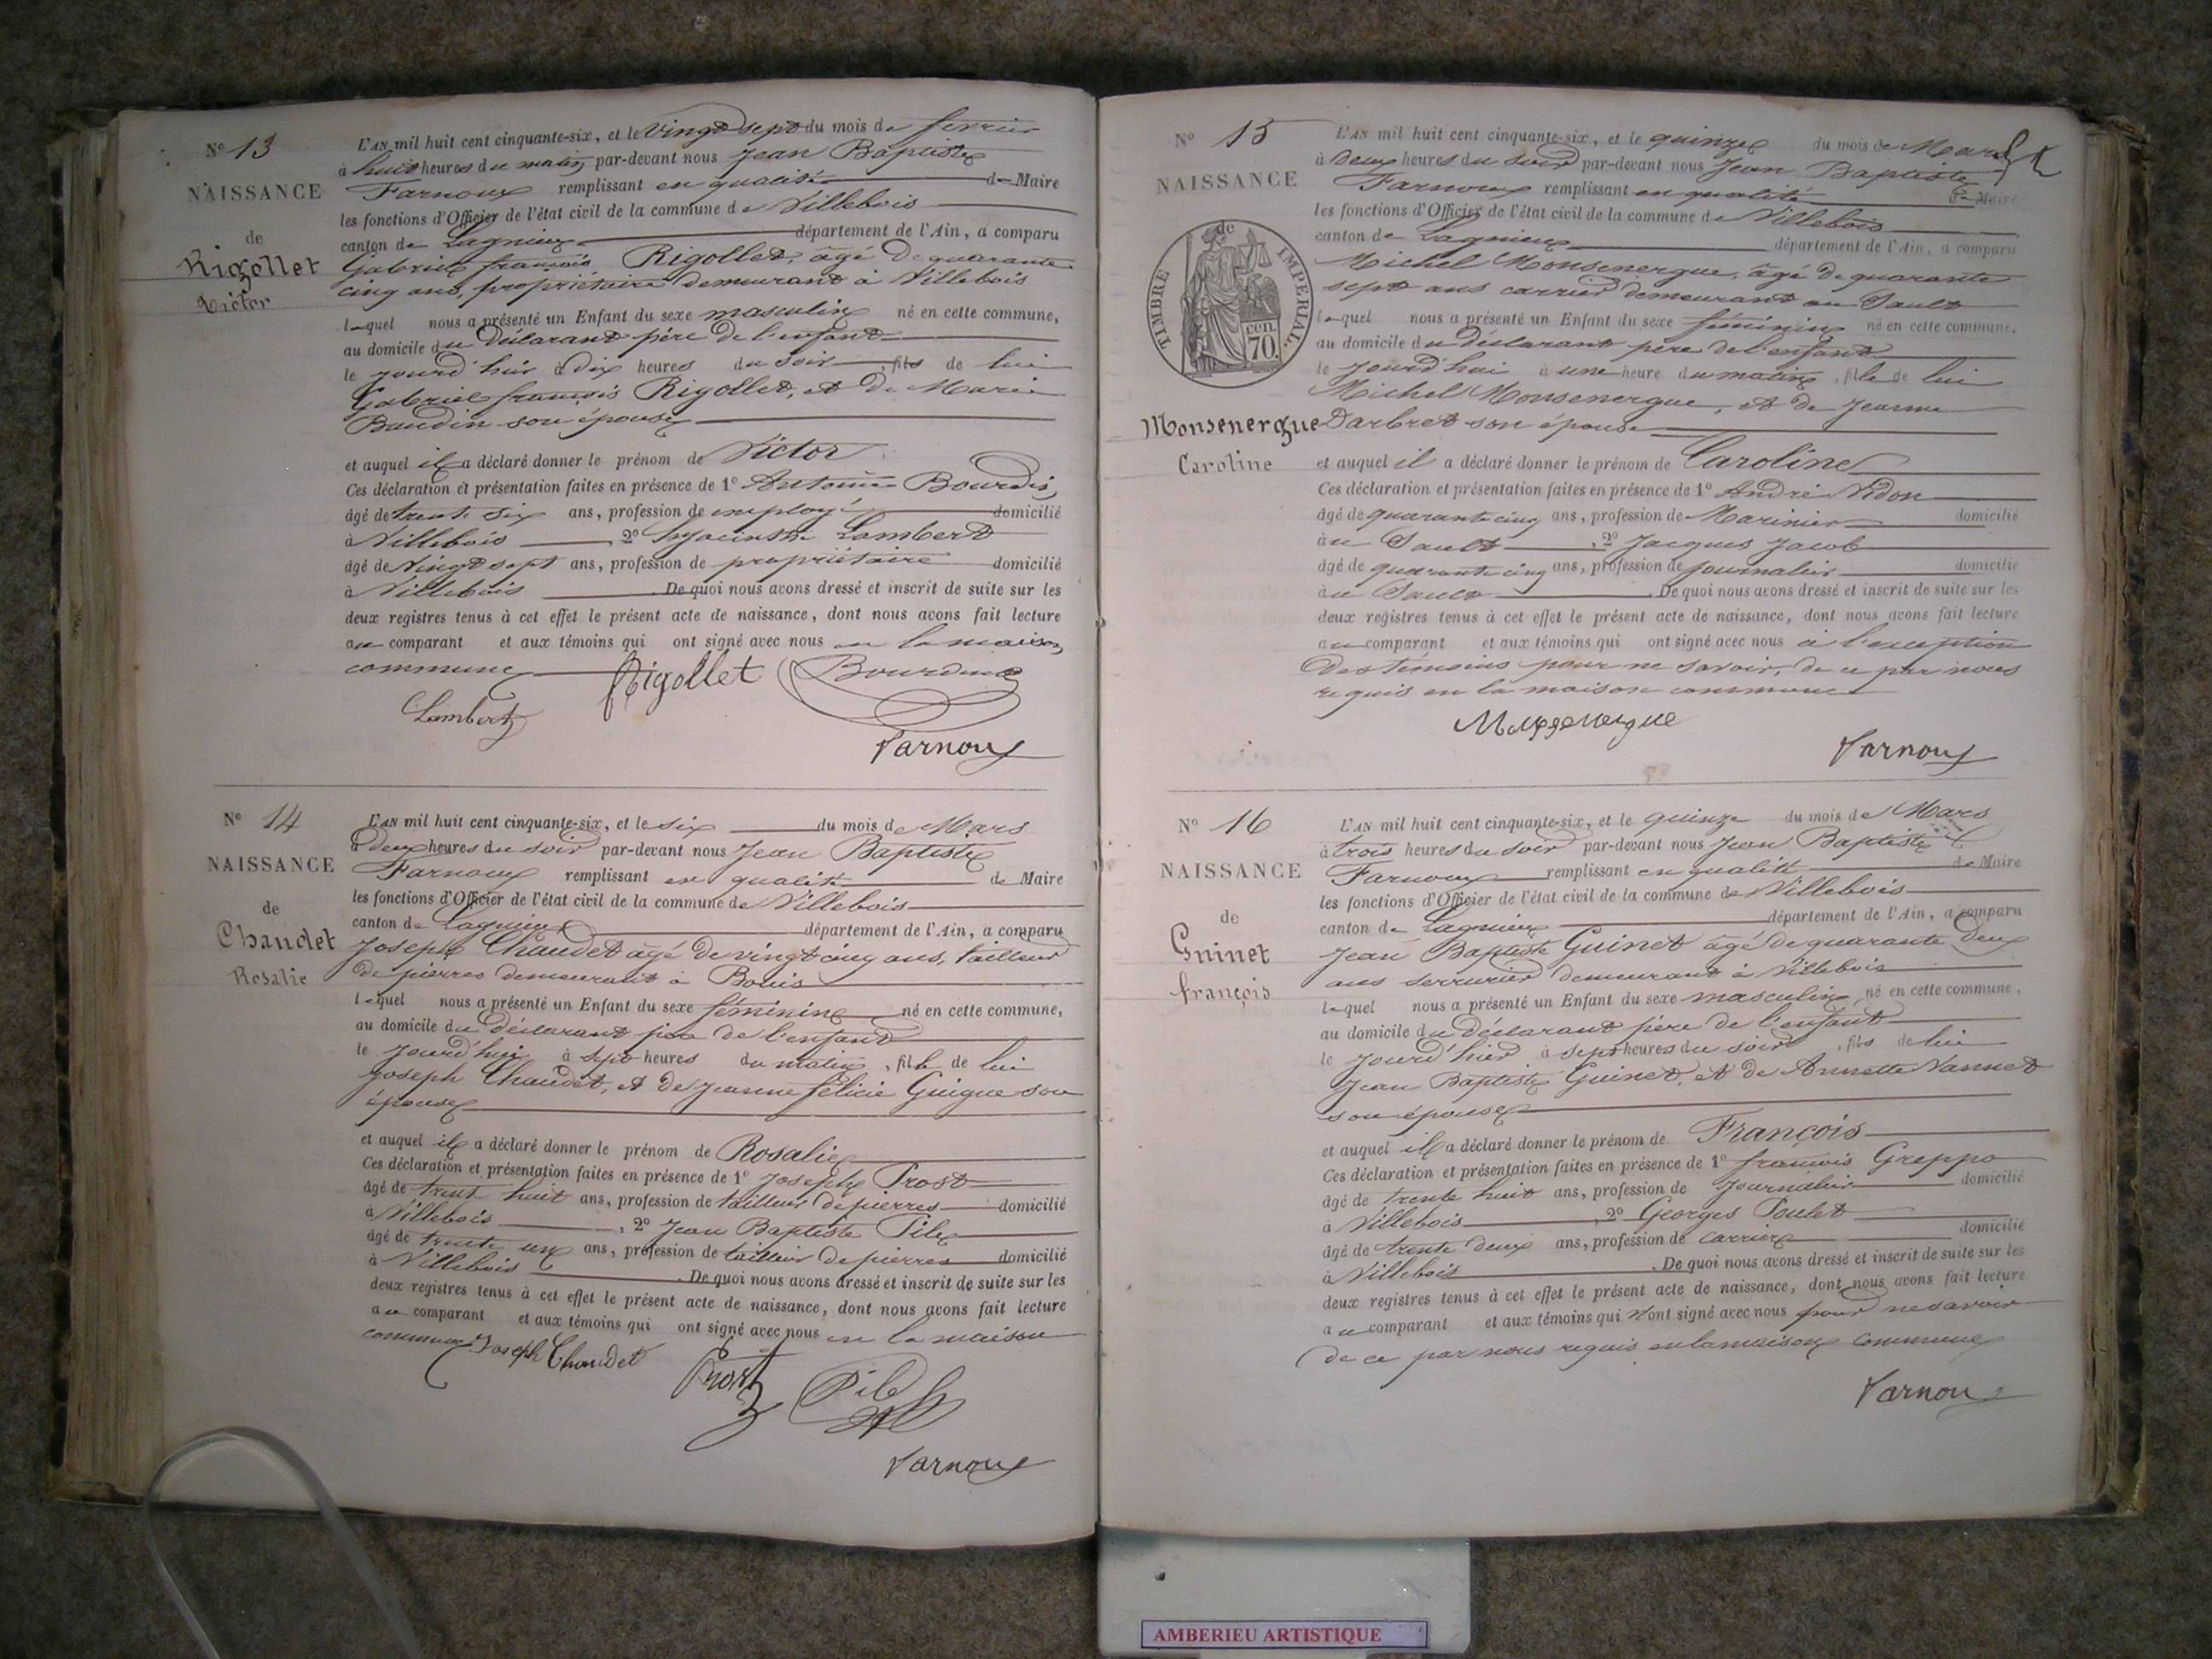 N° 13
NAISSANCE
de
Rigollet
Victor
L'AN mil huit cent cinquante-six, et le vingt sept du mois de fevrier
à huit heures du matin par-devant nous Jean Baptiste
Farnoux remplissant en qualité de Maire
les fonctions d'Officier de l'état civil de la commune de Villebois
canton de Lagnieux département de l'Ain, a comparu
Gabriel françois Rigollet, âgé de quarante
cinq ans, propriétaire demeurant à Villebois
lequel nous a présenté un Enfant du sexe masculin né en cette commune,
au domicile du déclarant père de l'enfant
le jourd'hier à dix heures du soir, fils de lui
Gabriel françois Rigollet, et de Marie
Baudin son épouse
et auquel il a déclaré donner le prénom de Victor
Ces déclaration et présentation faites en présence de 1° Antoine Bourdin,
âgé de trente six ans, profession de employé domicilié
à Villebois, 2° hyacinthe Lambert
âgé de vingt sept ans, profession de propriétaire domicilié
à Villebois. De quoi nous avons dressé et inscrit de suite sur les
deux registres tenus à cet effet le présent acte de naissance, dont nous avons fait lecture
au comparant et aux témoins qui ont signé avec nous en la maison
commune
Rigollet Bourdin
Lambert
Farnoux
N° 14
NAISSANCE
de
Chaudet
Rosalie
L'AN mil huit cent cinquante-six, et le six du mois de Mars
à deux heures du soir par-devant nous Jean Baptiste
Farnoux remplissant en qualité de Maire
les fonctions d'Officier de l'état civil de la commune de Villebois
canton de Lagnieux département de l'Ain, a comparu
Joseph Chaudet âgé de vingt cinq ans, tailleur
de pierres demeurant à Bouis
lequel nous a présenté un Enfant du sexe féminin né en cette commune,
au domicile du déclarant père de l'enfant
le jourd'hui à sept heures du matin, fille de lui
Joseph Chaudet, et de Jeanne félicie Guigue son
épouse
et auquel il a déclaré donner le prénom de Rosalie
Ces déclaration et présentation faites en présence de 1° Joseph Prost
âgé de trent huit ans, profession de tailleur de pierres domicilié
à Villebois, 2° Jean Baptiste Pile
âgé de trente un ans, profession de tailleur de pierres domicilié
à Villebois. De quoi nous avons dressé et inscrit de suite sur les
deux registres tenus à cet effet le présent acte de naissance, dont nous avons fait lecture
au comparant et aux témoins qui ont signé avec nous en la maison
commune Joseph Chaudet
Prost Pile
Farnoux
N° 15
NAISSANCE
de
TIMBRE IMPERIAL
70 cen.
Monsenergue
Caroline
L'AN mil huit cent cinquante-six, et le quinze du mois de Mars
à deux heures du soir par-devant nous Jean Baptiste
Farnoux remplissant en qualité de Maire
les fonctions d'Officier de l'état civil de la commune de Villebois
canton de Lagnieux département de l'Ain, a comparu
Michel Monsenergue, âgé de quarante
sept ans carrier demeurant au Sault
lequel nous a présenté un Enfant du sexe féminin né en cette commune,
au domicile du déclarant père de l'enfant
le jourd'hui à une heure du matin, fille de lui
Michel Monsenergue, et de Jeanne
Darbret son épouse
et auquel il a déclaré donner le prénom de Caroline
Ces déclaration et présentation faites en présence de 1° André Vidon
âgé de quarante cinq ans, profession de Marinier domicilié
au Sault, 2° Jacques Jacob
âgé de quarante cinq ans, profession de journalier domicilié
au Sault. De quoi nous avons dressé et inscrit de suite sur les
deux registres tenus à cet effet le présent acte de naissance, dont nous avons fait lecture
au comparant et aux témoins qui ont signé avec nous à l'exception
des témoins pour ne savoir, de ce par nous
requis en la maison commune
Farnoux
N° 16
NAISSANCE
de
Guinet
françois
L'AN mil huit cent cinquante-six, et le quinze du mois de Mars
à trois heures du soir par-devant nous Jean Baptiste
Farnoux remplissant en qualité de Maire
les fonctions d'Officier de l'état civil de la commune de Villebois
canton de Lagnieux département de l'Ain, a comparu
Jean Baptiste Guinet âgé de quarante deux
ans serrurier demeurant à Villebois
lequel nous a présenté un Enfant du sexe masculin né en cette commune,
au domicile du déclarant père de l'enfant
le jourd'hier à sept heures du soir, fils de lui
Jean Baptiste Guinet, et de Annette Vannet
son épouse
et auquel il a déclaré donner le prénom de François
Ces déclaration et présentation faites en présence de 1° françois Greppo
âgé de trente huit ans, profession de Journalier domicilié
à Villebois, 2° Georges Poulet
âgé de trente deux ans, profession de carrier domicilié
à Villebois. De quoi nous avons dressé et inscrit de suite sur les
deux registres tenus à cet effet le présent acte de naissance, dont nous avons fait lecture
au comparant et aux témoins qui n'ont signé avec nous pour ne savoir
de ce par nous requis en la maison commune
Farnoux
AMBERIEU ARTISTIQUE